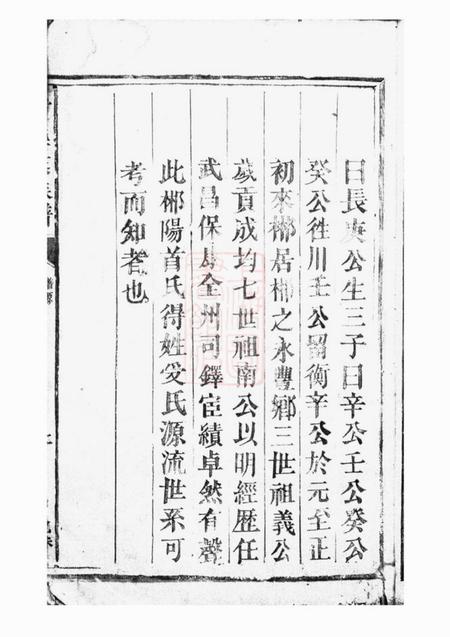 曰長庚公生三子曰辛公壬公癸公
癸公徃川壬公留衡辛公於元至正
初來郴居郴之永豐鄉三世祖義公
歲貢成均七世祖南公以明經歷任
武昌保康全州司鐸宦績卓然有聲
此郴陽首氏得姓受氏源流世系可
考而知者也